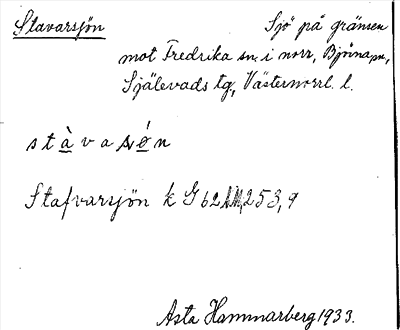 Stavarsjön Sjö på gränsen
mot Fredrika sn. i norr, Björna sn,
Själevads tg, Västernorrl. l.
stàvasǿn
Stafvarsjön k G 62 253,9
Asta Hammarberg 1933.